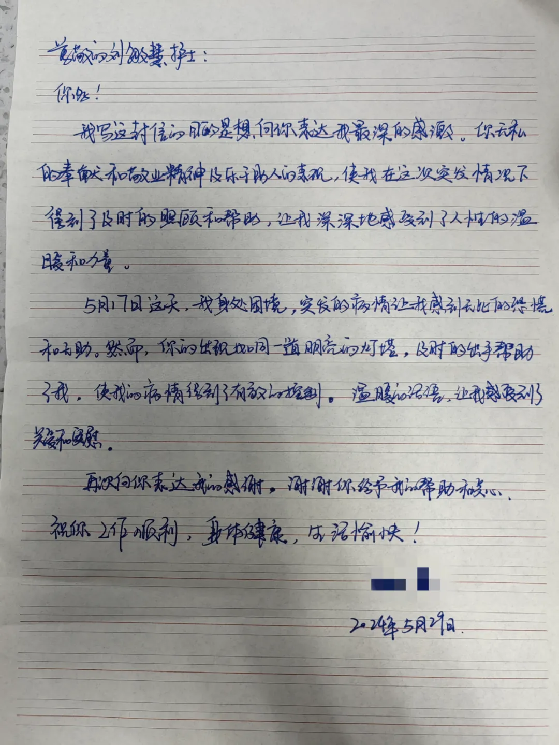 尊敬的刘敏慧护士：
你好！
我写这封信的目的是想向你表达我最深的感激。你无私
的奉献和敬业精神及乐于助人的表现，使我在这次突发情况下
得到了及时的照顾和帮助，让我深深地感受到了人性的温
暖和力量。
5月17日这天，我身处困境，突发的病情让我感到无比的恐慌
和无助。然而，你的出现如同一道明亮的灯塔，及时的出手帮助
了我，使我的病情得到了有效的控制。温暖的话语，让我感受到了
关爱和安慰。
再次向你表达我的感谢。谢谢你给予我的帮助和关心.
祝你工作顺利，身体健康，生活愉快！
2024年5月29日.